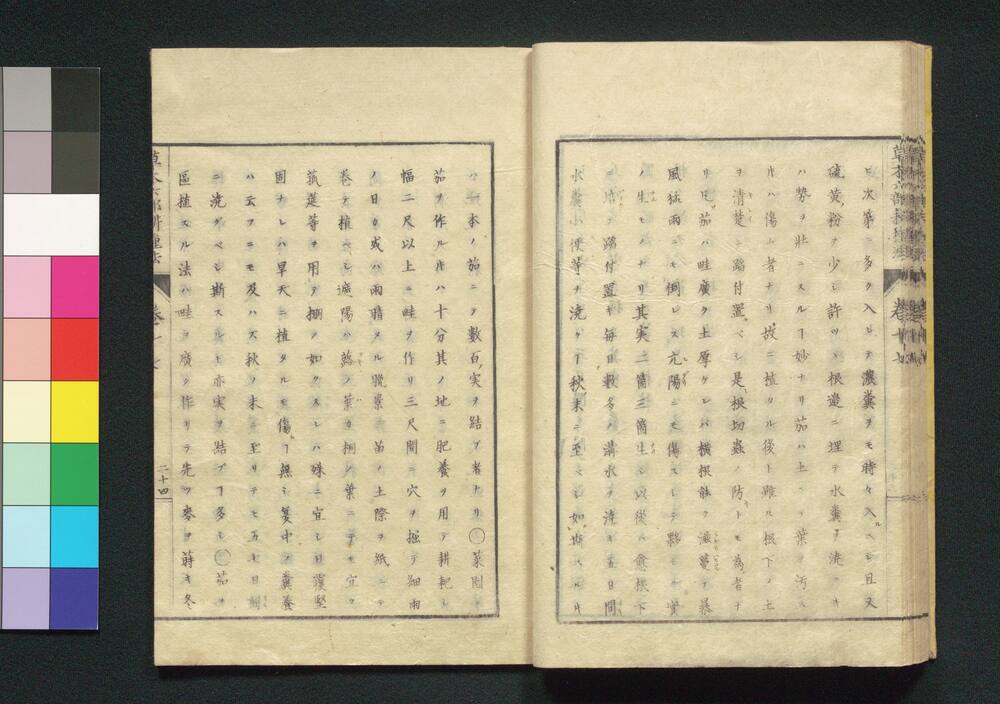 ヒ次第ニ多ク入レテ濃糞ヲモ時々入ベシ且又
硫黄粉ヲ少シ許ツヽ根邉ニ埋テ水糞ヲ澆ク
ハ勢ヲ壯ニスルヿ妙ナリ茄ハ土ニテ葉ヲ汚ス
ハ傷ム者ナリ故ニ植タル後ト雖ル根下ノ土
ヲ清楚ニ踏付置ベシ是根切蟲ノ防トモ為者ナ
リ凡茄ハ畦廣ク土厚ケレバ横根能ク滋蔓テ暴
風猛雨ニモ倒レス亢陽ニモ傷スシテ夥シク實
ノ生モノナリ其実二箇三箇生シ以後ハ愈根下
ニ培シ踏付置キ毎日数多ノ溝水ヲ澆キ五日間
水糞小便等ヲ澆クヿ秋末ニ至ベシ如斯スル
草木六部耕種法 巻十七
一本ノ茄ニテ數百実ヲ結ブ者ナリ○菜圃ニ
茄ヲ作ルハ十分其ノ地ニ肥養ヲ用テ耕耙シ
幅二尺以上ニ畦ヲ作リ三尺間ニ穴ヲ掘テ細雨
ノ日カ或ハ雨晴タル晩景ニ苗ノ土際ヲ紙ニテ
巻テ植ベシ遮陽ハ蕗ノ葉カ桐ノ葉ニテモ宜ク
菰莚等ヲ用ヲ棚ノ如クスレハ殊ニ宜シ日覆堅
固ナレハ旱天ニ植タルモ傷ヿ無シ夏中ノ糞養
ハ云フニモ及ハス秋ノ末ニ至リテモ五七日間
ニ澆グベシ斯スルモ亦実ヲ結ブヿ多シ○茄ヲ
區植スル法ハ畦ヲ廣ク作リテ先ツ麥ヲ蒔キ冬
草木六部耕種法 巻十七 二十四